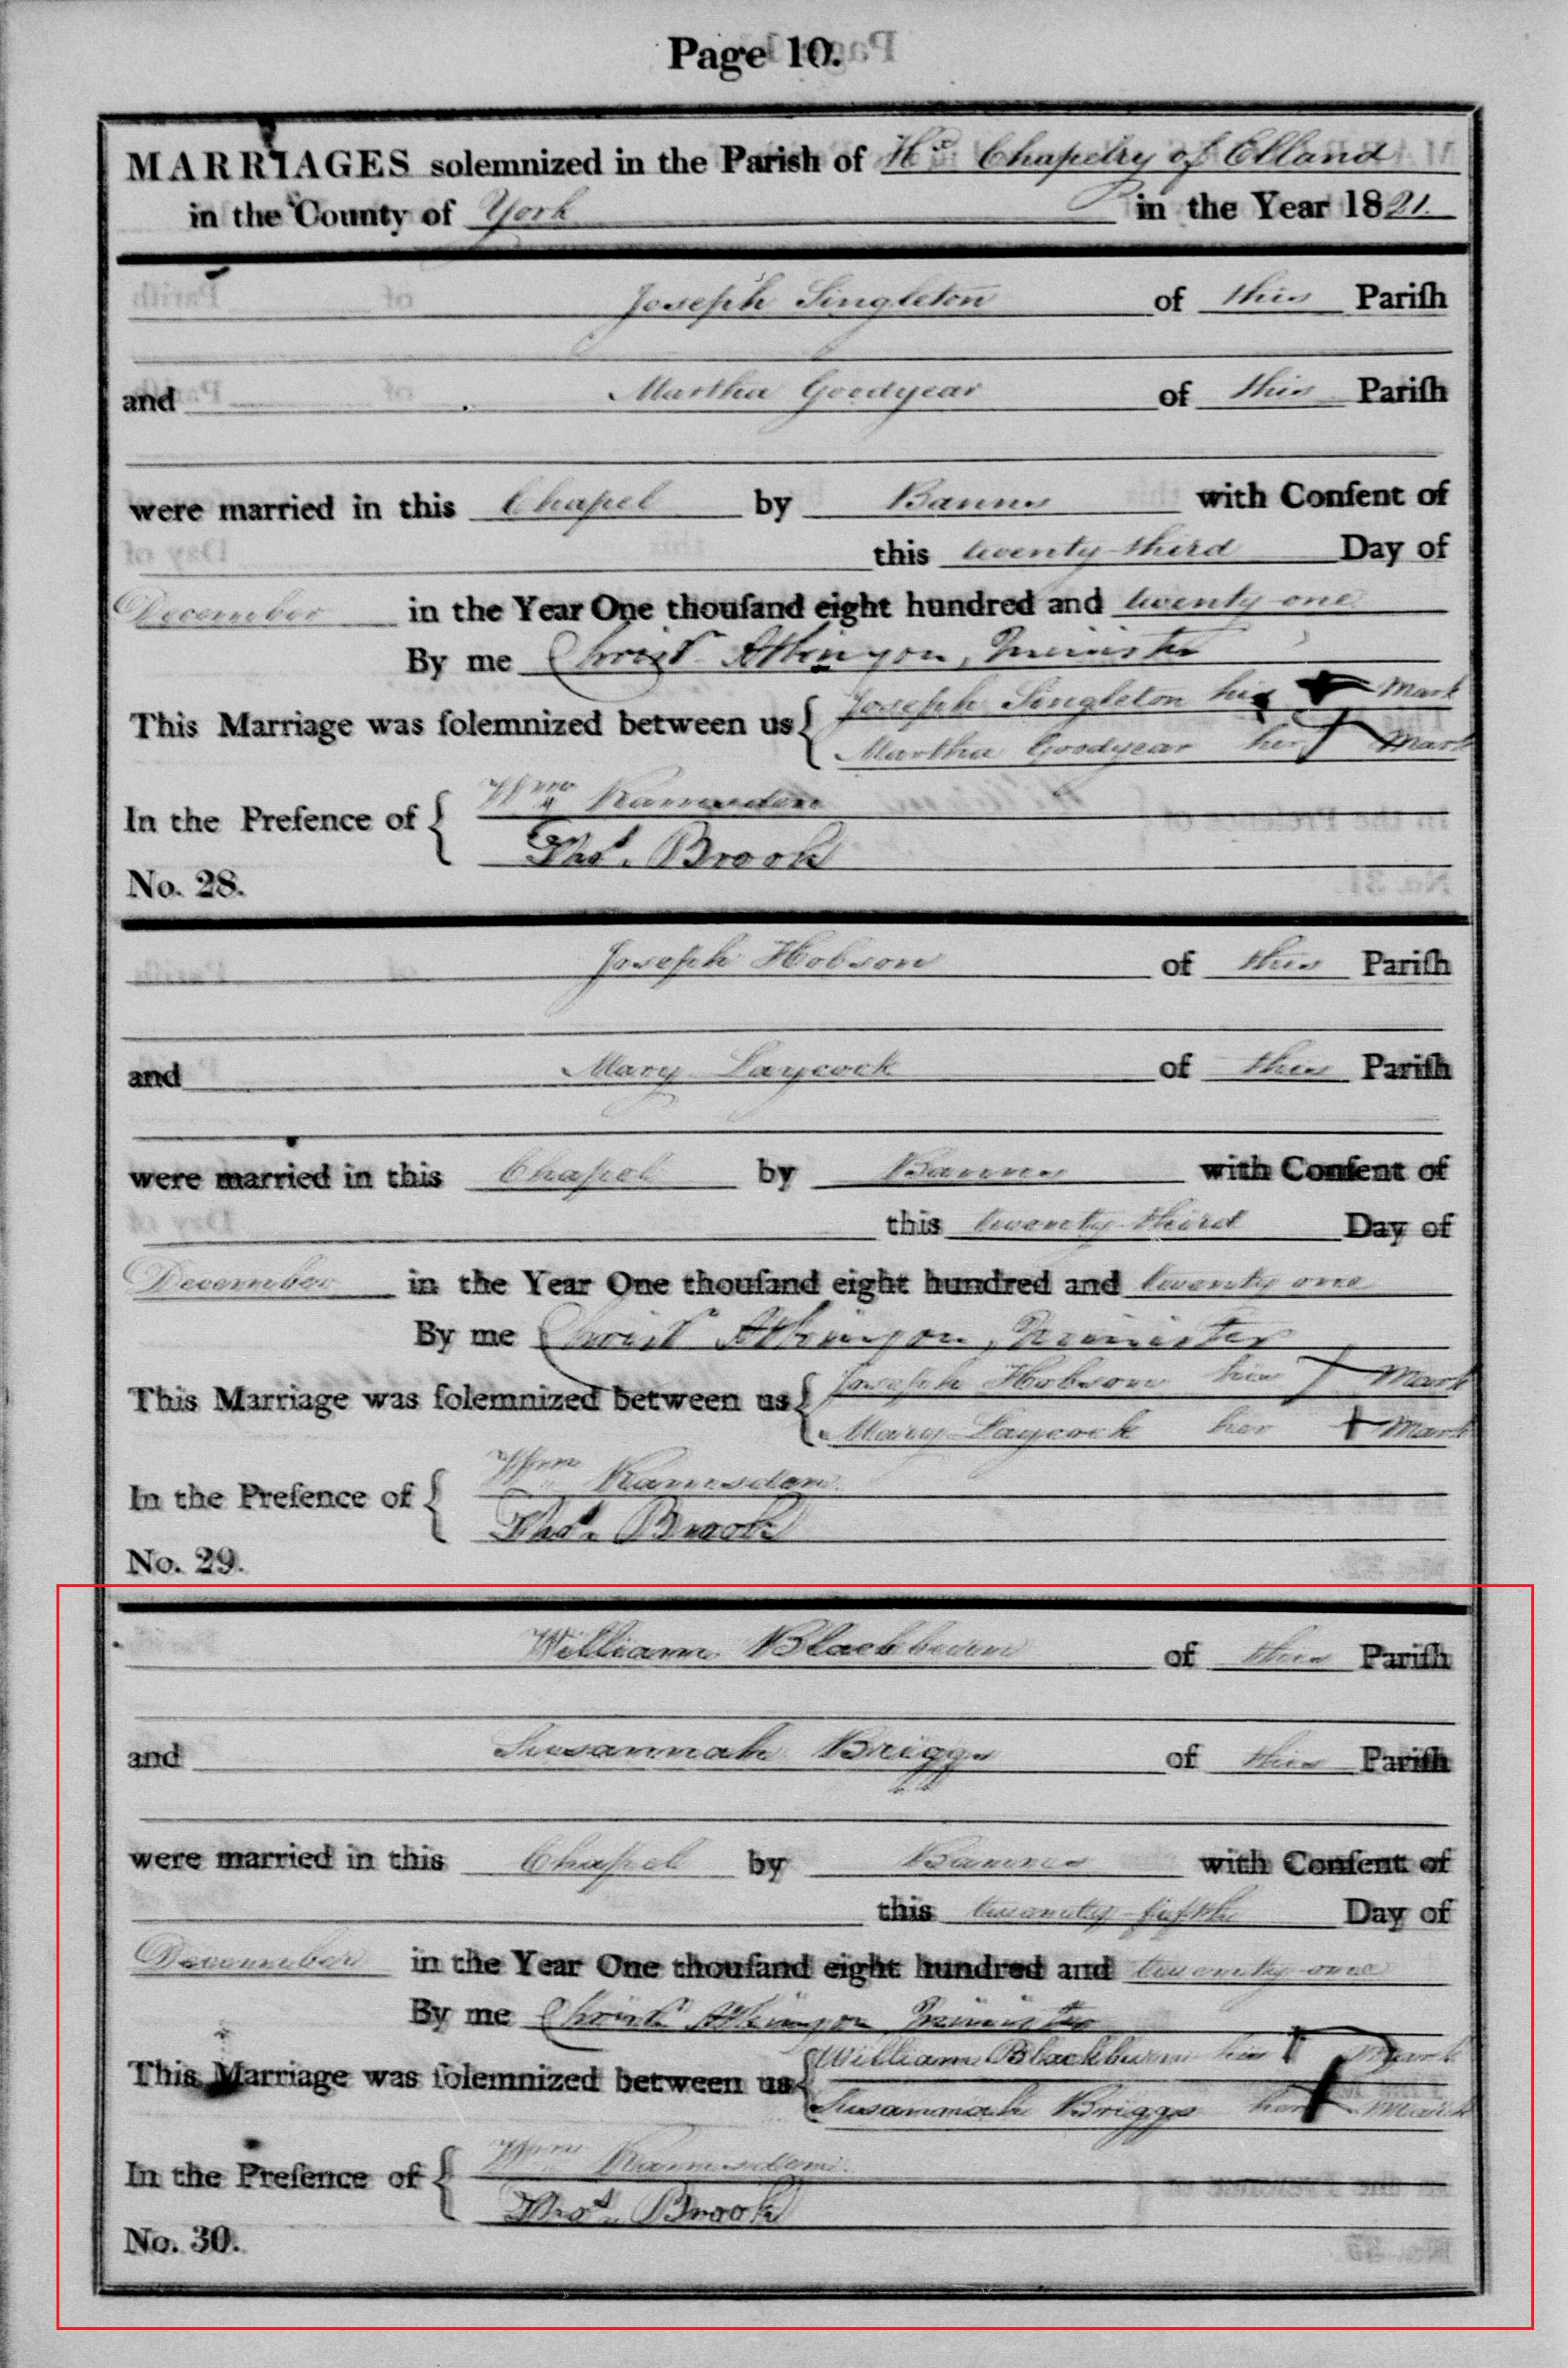 Page 10.
MARRIAGES solemnized in the Parish of Hx Chapelry of Elland
in the County of York in the Year 1821.
Joseph Singleton of this Pariſh
and Martha Goodyear of this Pariſh
were married in this Chapel by Banns with Conſent of
this twenty-third Day of
December in the Year One thouſand eight hundred and twenty one
By me Christ. Atkinson, Minister
This Marriage was ſolemnized between us { Joseph Singleton his + Mark
Martha Goodyear her + Mark
In the Preſence of { Wm Ramsden
Thos. Brook
No. 28.
Joseph Hobson of this Pariſh
and Mary Laycock of this Pariſh
were married in this Chapel by Banns with Conſent of
this twenty-third Day of
December in the Year One thouſand eight hundred and twenty one
By me Christ. Atkinson, Minister
This Marriage was ſolemnized between us { Joseph Hobson his + Mark
Mary Laycock her + Mark
In the Preſence of { Wm Ramsden
Thos. Brook
No. 29.
William Blackburn of this Pariſh
and Susannah Briggs of this Pariſh
were married in this Chapel by Banns with Conſent of
this twenty-fifth Day of
December in the Year One thouſand eight hundred and twenty-one
By me Christ. Atkinson Minister
This Marriage was ſolemnized between us { William Blackburn his + Mark
Susannah Briggs her + Mark
In the Preſence of { Wm Ramsden
Thos. Brook
No. 30.